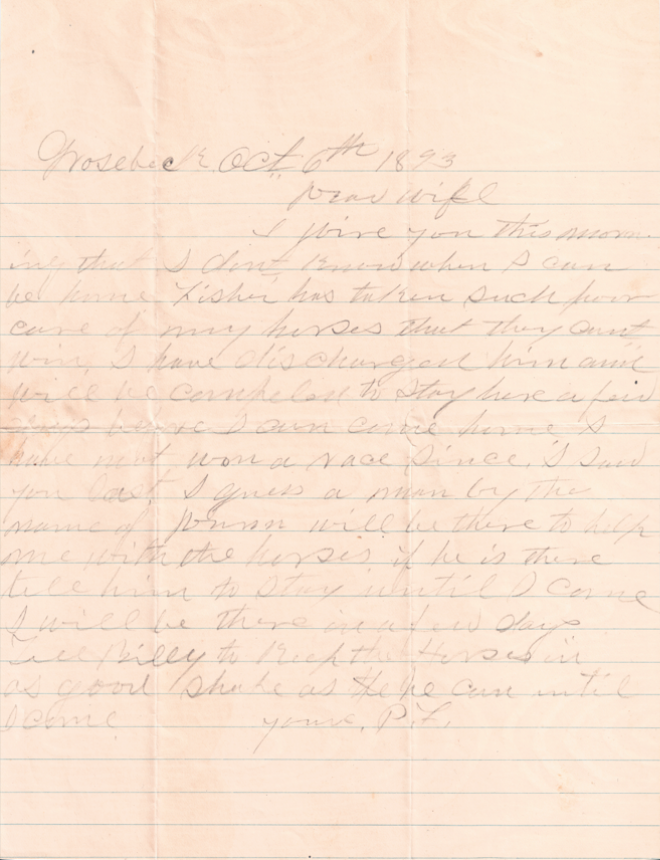 Grosebeck. Oct 6th 1893
Dear wife
I wire you this morn
ing that I dont know when I can
be home Fisher has taken such poor
care of my horses that they cant
win. I have discharged him and
will be compeled to stay here a few
days before I can come home I
have not won a race since I saw
you last I guess a man by the
name of will be there to help
me with the horses if he is there
tell him to stay until I come
I will be there in a few days
Tell Billy to Keep the Horses in
as good shape as he can until
I come yours, P.F.